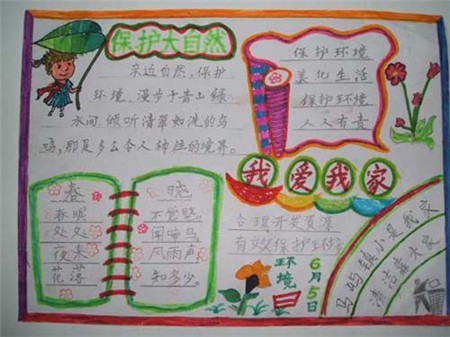 保护大自然
亲近自然,保护
环境,漫步于青山绿
水间,倾听清翠如洗的鸟
鸣,那是多么令人神往的境界。
保护环境
美化生活
保护环境
人人有责
我爱我家
春 晓
春眠 不觉晓。
处处 闻啼鸟。
夜来 风雨声,
花落 知多少。
合理开发资源
有效保护环境
环境日
6月5日
马鸣镇小是我家
清洁靠大家